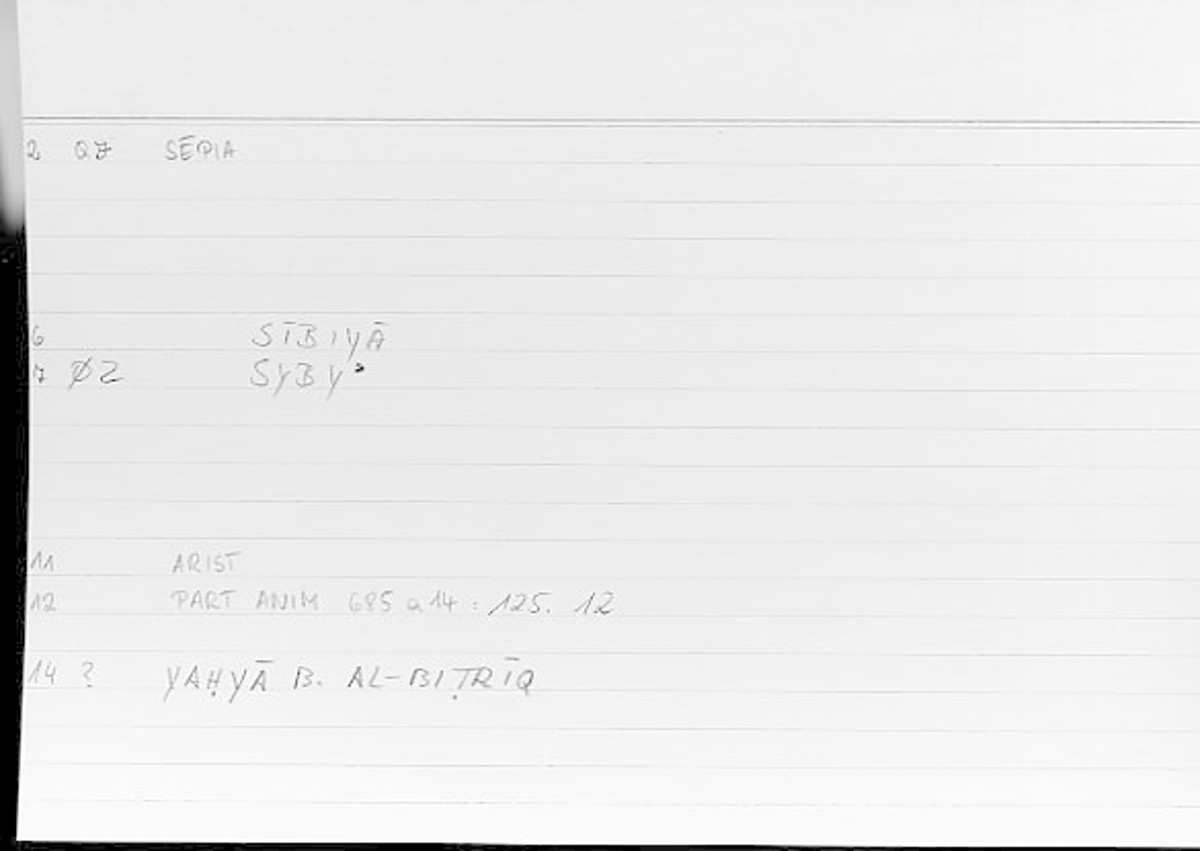 2 07 SĒPIA
6 SĪBIYĀ
7 Ø2 SYBYʾ
11 ARIST
12 PART ANIM 685 a 14 : 125. 12
14 ? YAḤYĀ B. AL-BIṬRĪQ